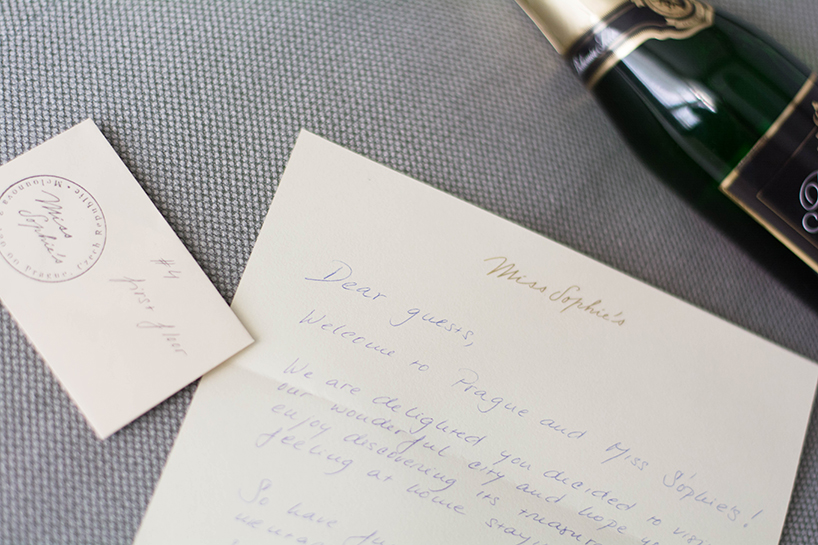 Miss Sophie's
Melounova
Prague, Czech Republic
#4
first floor
Miss Sophie's
Dear guests,
Welcome to Prague and Miss Sophie's!
We are delighted you decided to visi
our wonderful city and hope
enjoy discovering its
feeling at home stayi
So have fu